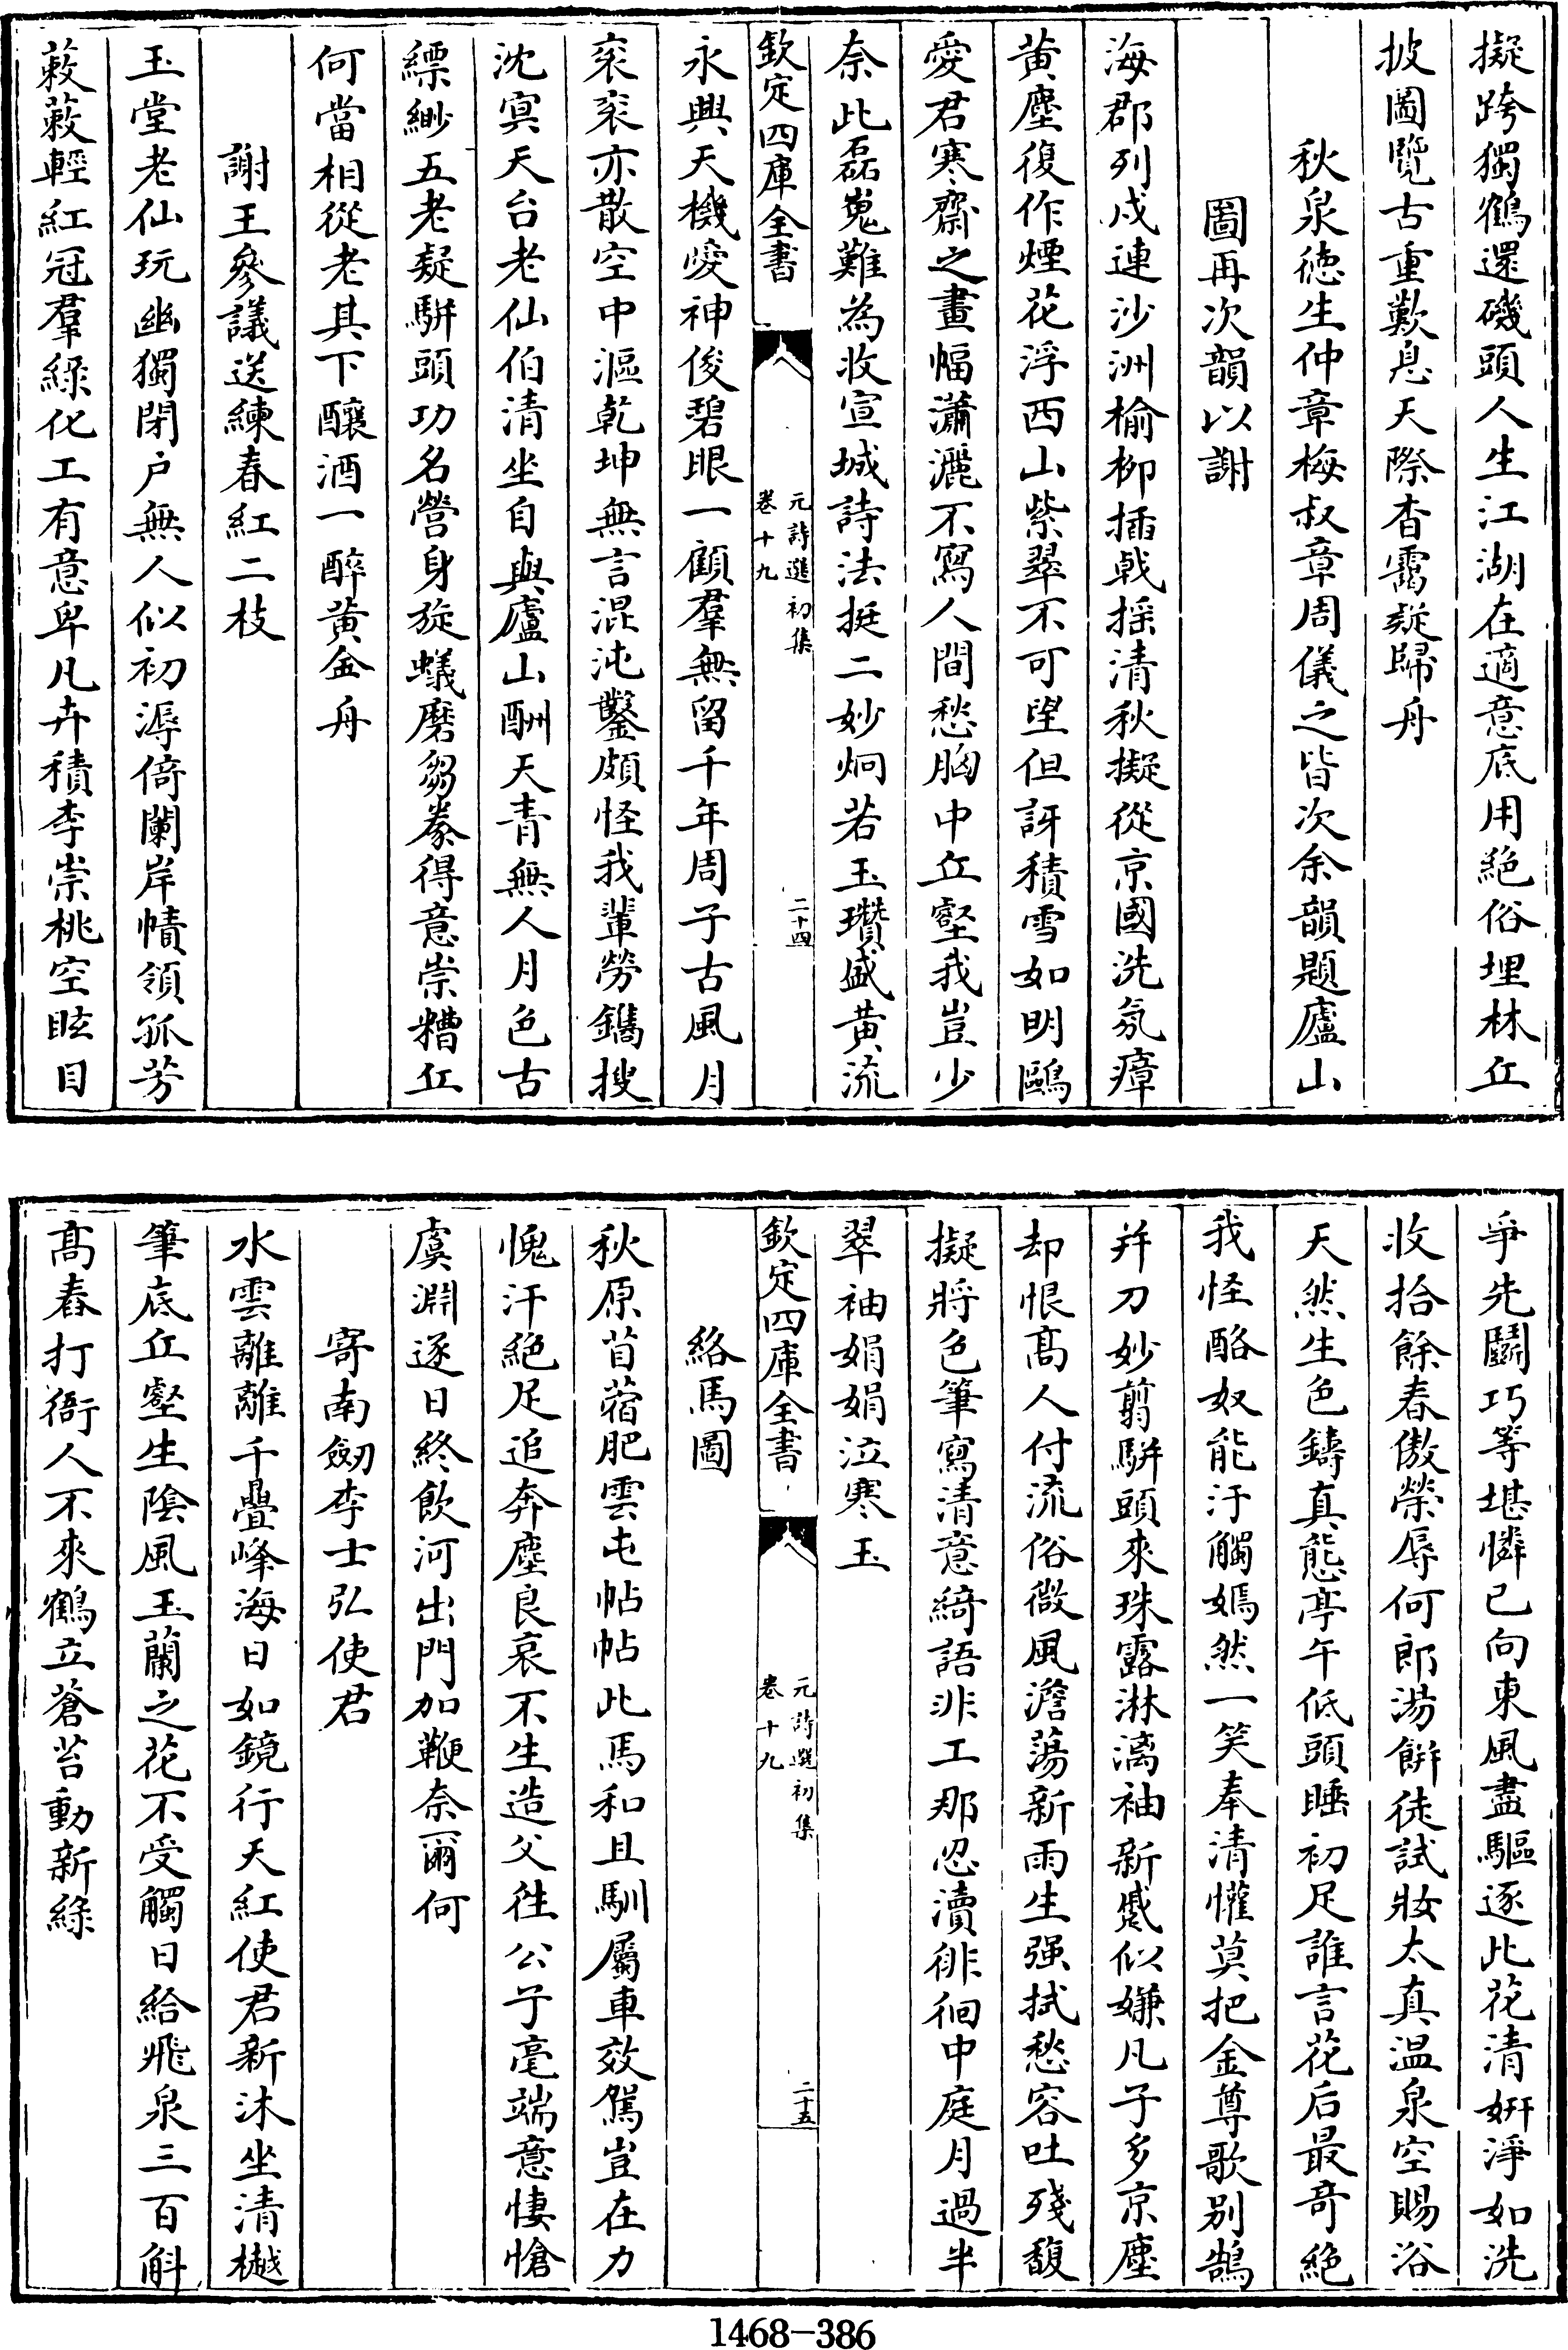 擬跨獨鶴還磯頭人生江湖在適意底用絶俗埋林丘
披圖覽古重歎息天際杳靄疑歸舟
秋泉徳生仲章梅叔章周儀之皆次余韻題廬山
圖再次韻以謝
海郡列戍連沙洲榆柳插㦸揺清秋擬從京國洗氛瘴
黄塵復作煙花浮西山紫翠不可望但訝積雪如明鷗
愛君寒齋之畫幅瀟灑不寫人間愁胸中丘壑我豈少
奈此磊嵬難為收宣城詩法挺二妙炯若玉瓚盛黄流
欽定四庫全書
元詩選初集
卷十九
二十四
永興天機噯神俊碧眼一顧羣無留千年周子古風月
衮衮亦散空中漚乾坤無言混沌鑿頗怪我輩勞鐫搜
沈冥天台老仙伯清坐自與廬山酬天青無人月色古
縹緲五老疑駢頭功名營身旋蟻磨芻豢得意崇糟丘
何當相從老其下釀酒一醉黄金舟
謝王參議送練春紅二枝
玉堂老仙玩幽獨閉户無人似初溽倚闌岸幘領孤芳
蔌蔌輕紅冠羣緑化工有意卑凡卉積李崇桃空眩目
爭先鬭巧等堪憐已向東風盡驅逐此花清妍淨如洗
收拾餘春傲榮辱何郎湯餅徒試妝太真温泉空賜浴
天然生色鑄真態亭午低頭睡初足誰言花后最奇絶
我怪酪奴能汙觸嫣然一笑奉清懽莫把金尊歌别鵠
并刀妙翦駢頭來珠露淋漓袖新蹙似嫌凡子多京塵
却恨髙人付流俗微風澹蕩新雨生强拭愁容吐殘馥
擬將色筆寫清意綺語非工那忍瀆徘徊中庭月過半
翠袖娟娟泣寒玉
欽定四庫全書
元詩選初集
卷十九
二十五
絡馬圖
秋原苜蓿肥雲屯帖帖此馬和且馴屬車效駕豈在力
愧汗絶足追奔塵良哀不生造父徃公子毫端意悽愴
虞淵逐日終飲河出門加鞭奈爾何
寄南劒李士弘使君
水雲離離千疊峰海日如鏡行天紅使君新沐坐清樾
筆底丘壑生陰風玉蘭之花不受觸日給飛泉三百斛
髙舂打衙人不來鶴立蒼苔動新緑
1468-386